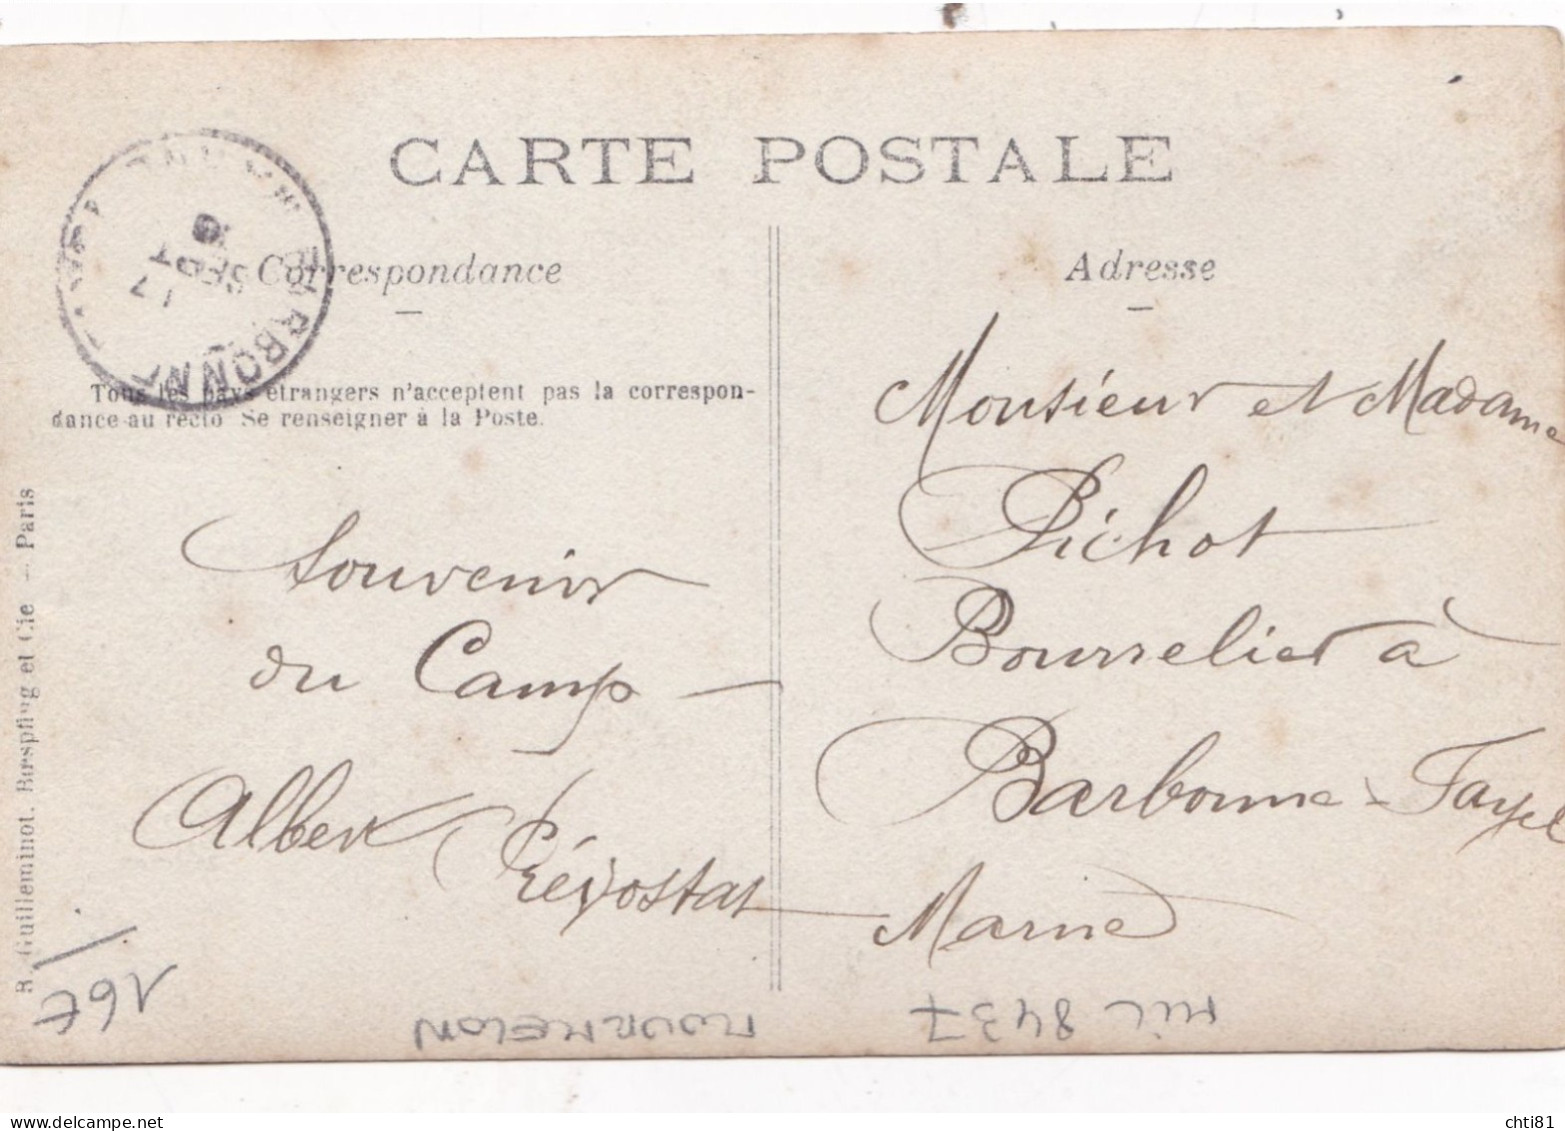 CARTE POSTALE
BARBONNE
17
SEPT
Correspondance
Adresse
Tous les pays étrangers n'acceptent pas la correspon-
dance au recto Se renseigner à la Poste.
R. Guilleminot, Bœspflug et Cie – Paris
Souvenir
du Camp –
Albert Prévostat
Monsieur et Madame
Pichot
Bourrelier à
Barbonne-Fayel
Marne
16€
MOURMELON
MIL 8437
chti81